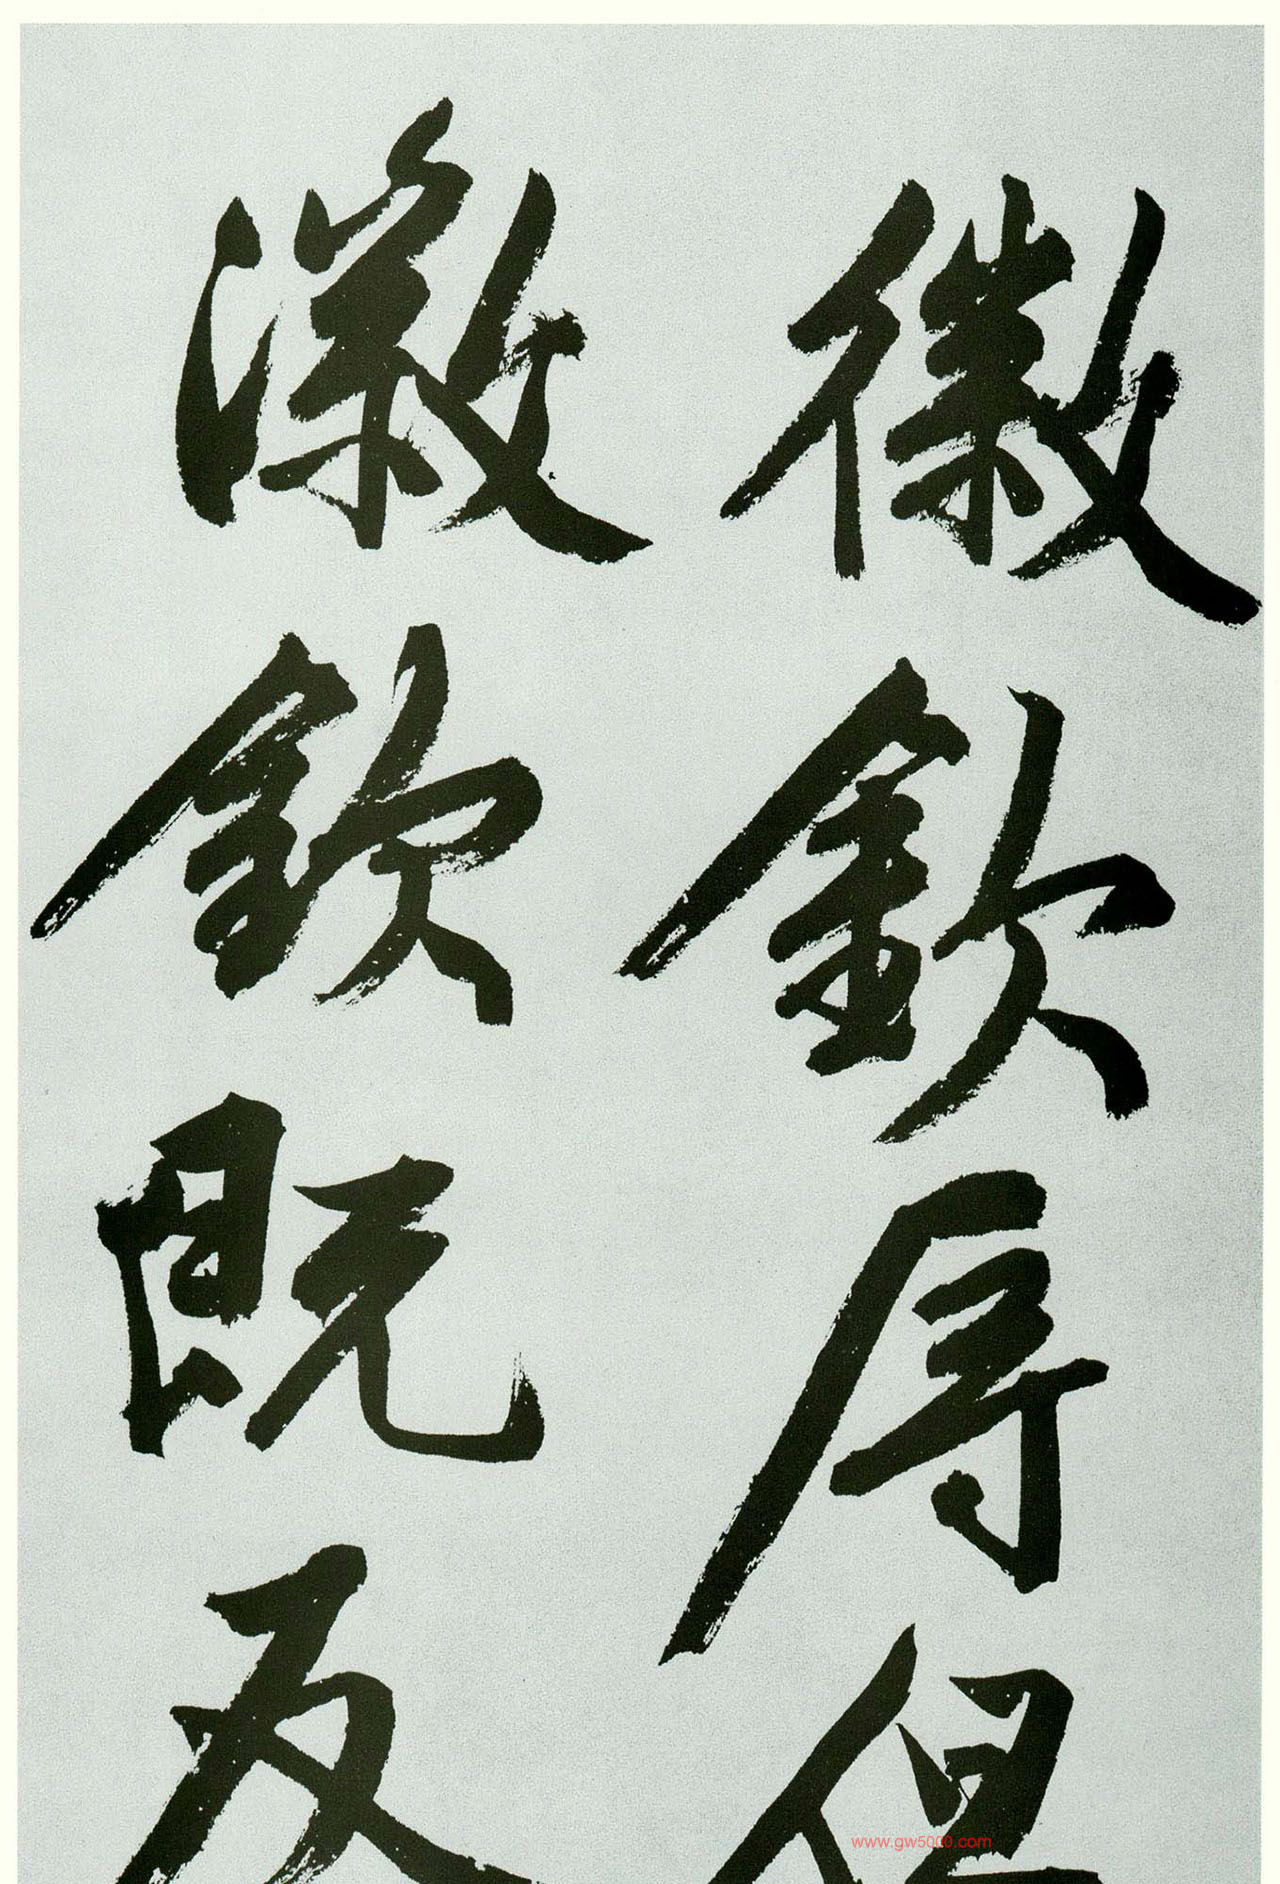 徽欽辱但
徽欽既反
www.gw5000.com